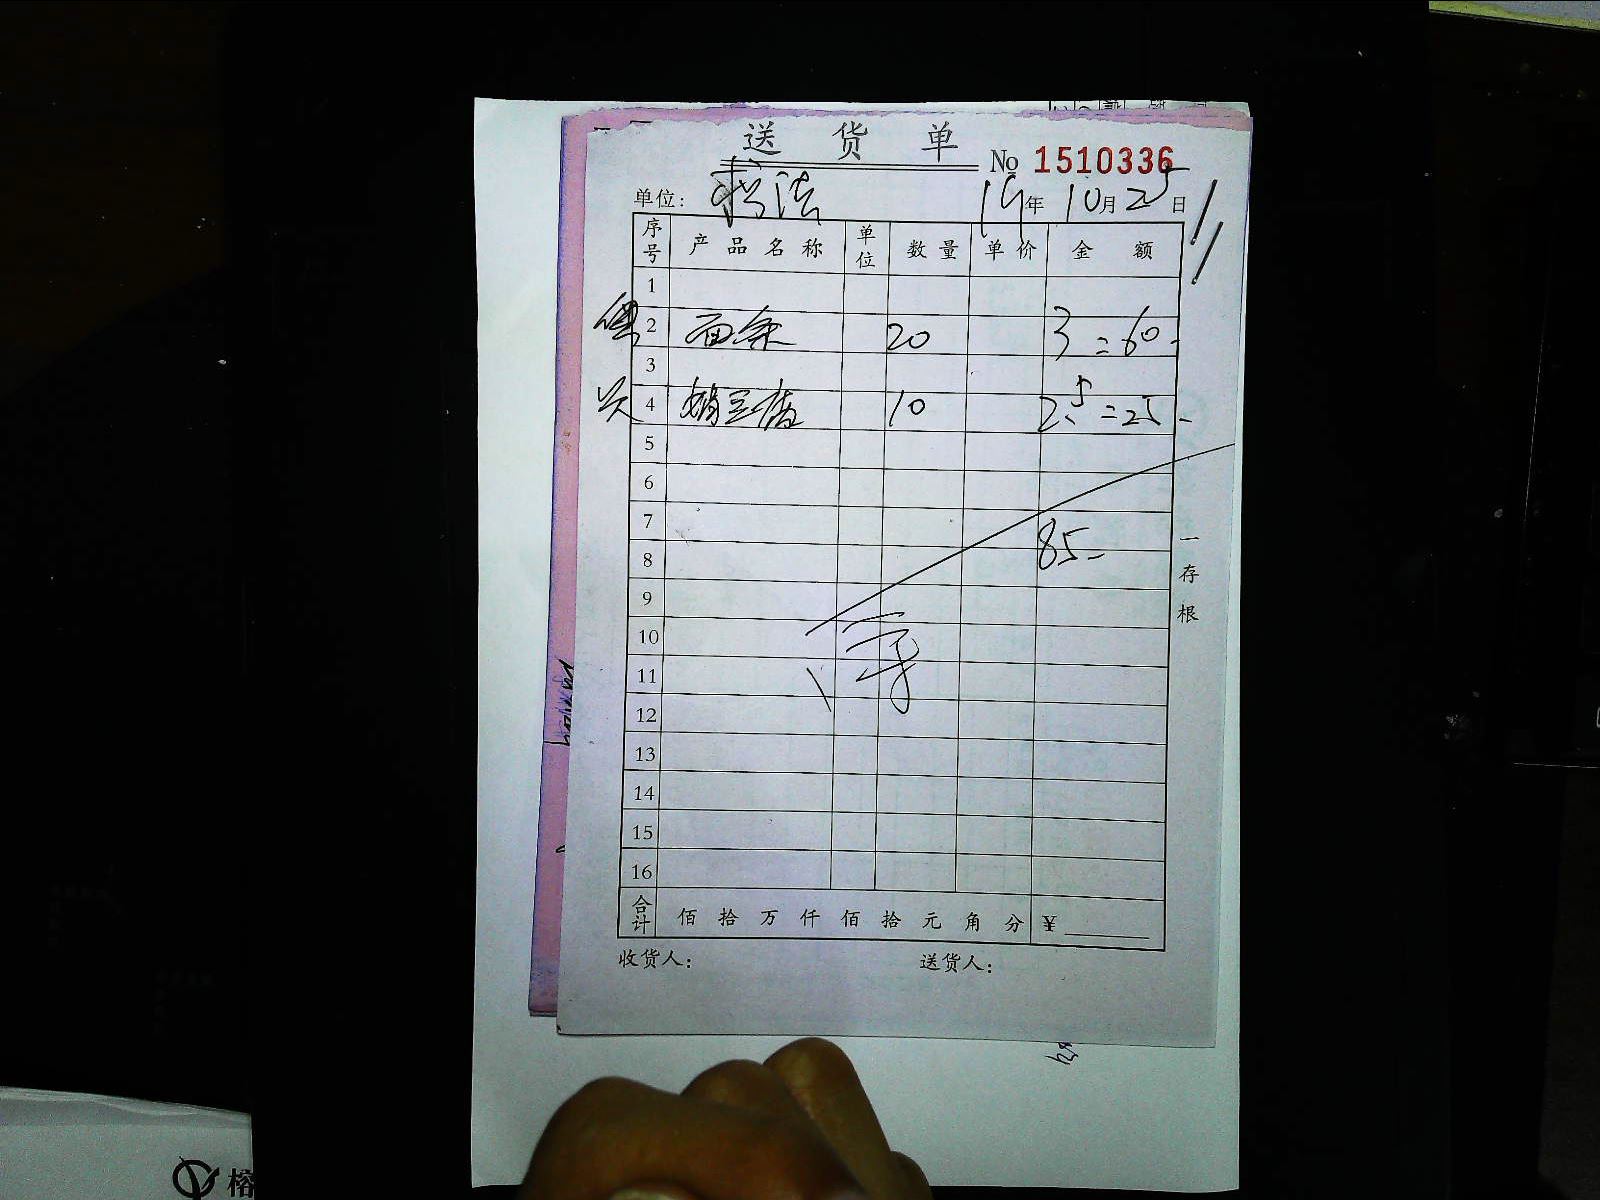 送货单 No 1510336
单位: 19年10月25日
序号 产品名称 单位 数量 单价 金额
1
2 面条 20 3=60-
3
4 豆腐 10 2.5=25-
5
6
7
8 85-
9
10
11
12
13
14
15
16
合计 佰拾万仟佰拾元角分 ¥
收货人: 送货人:
一存根
榕